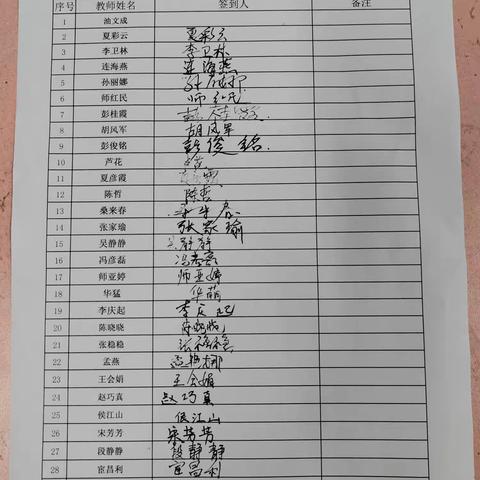 序号 教师姓名 签到人 备注
1 池文成
2 夏彩云 夏彩云
3 李卫林 李卫林
4 连海燕 连海燕
5 孙丽娜
6 师红民 师红民
7 彭桂霞
8 胡风军 胡风军
9 彭俊铭 彭俊铭
10 芦花
11 夏彦霞
12 陈哲 陈哲
13 桑来春
14 张家瑜 张家瑜
15 吴静静 吴静静
16 冯彦磊
17 师亚婷 师亚婷
18 华猛
19 李庆起 李庆起
20 陈晓晓
21 张稳稳
22 孟燕
23 王会娟 王会娟
24 赵巧真 赵巧真
25 侯江山 侯江山
26 宋芳芳 宋芳芳
27 段静静 段静静
28 宦昌利 宦昌利